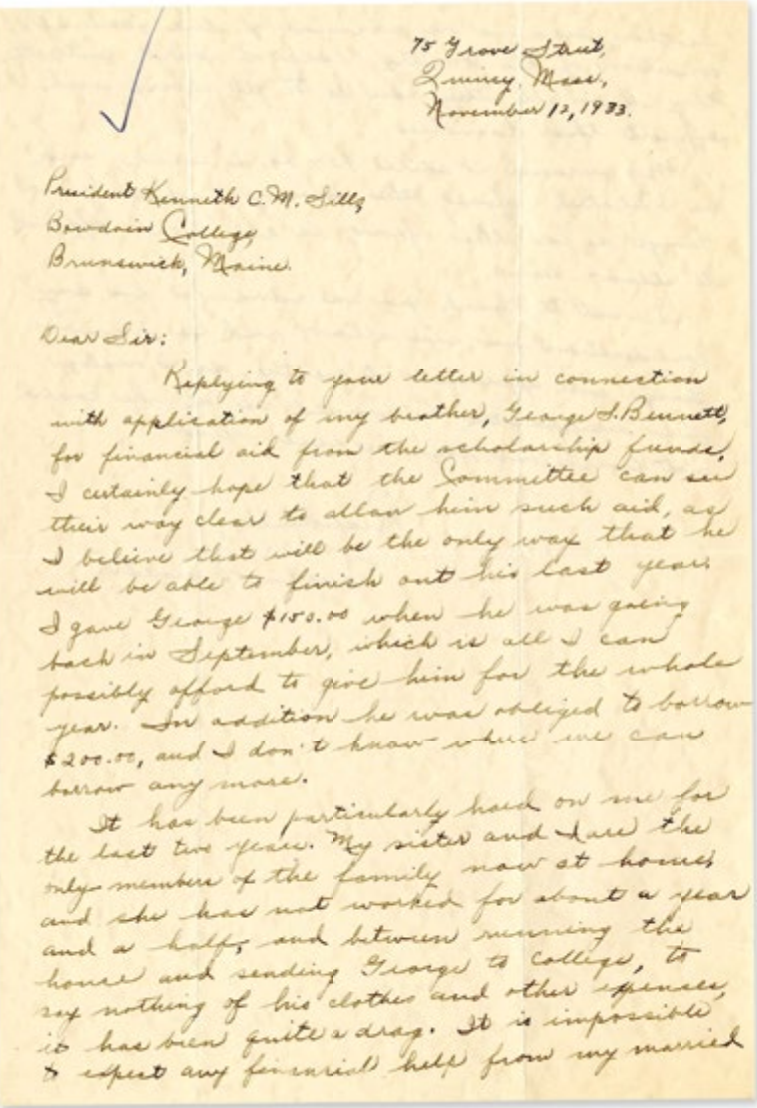 75 Grove Street,
Quincy, Mass.,
November 12, 1933.
President Kenneth C. M. Sills,
Bowdoin College,
Brunswick, Maine.
Dear Sir:
Replying to your letter in connection
with application of my brother, George S. Bennett,
for financial aid from the scholarship funds,
I certainly hope that the Committee can see
their way clear to allow him such aid, as
I believe that will be the only way that he
will be able to finish out his last year.
I gave George $150.00 when he was going
back in September, which is all I can
possibly afford to give him for the whole
year. In addition he was obliged to borrow
$200.00, and I don't know where we can
borrow any more.
It has been particularly hard on me for
the last two years. My sister and I are the
only members of the family now at home,
and she has not worked for about a year
and a half, and between running the
house and sending George to college, to
say nothing of his clothes and other expenses,
it has been quite a drag. It is impossible
to expect any financial help from my married